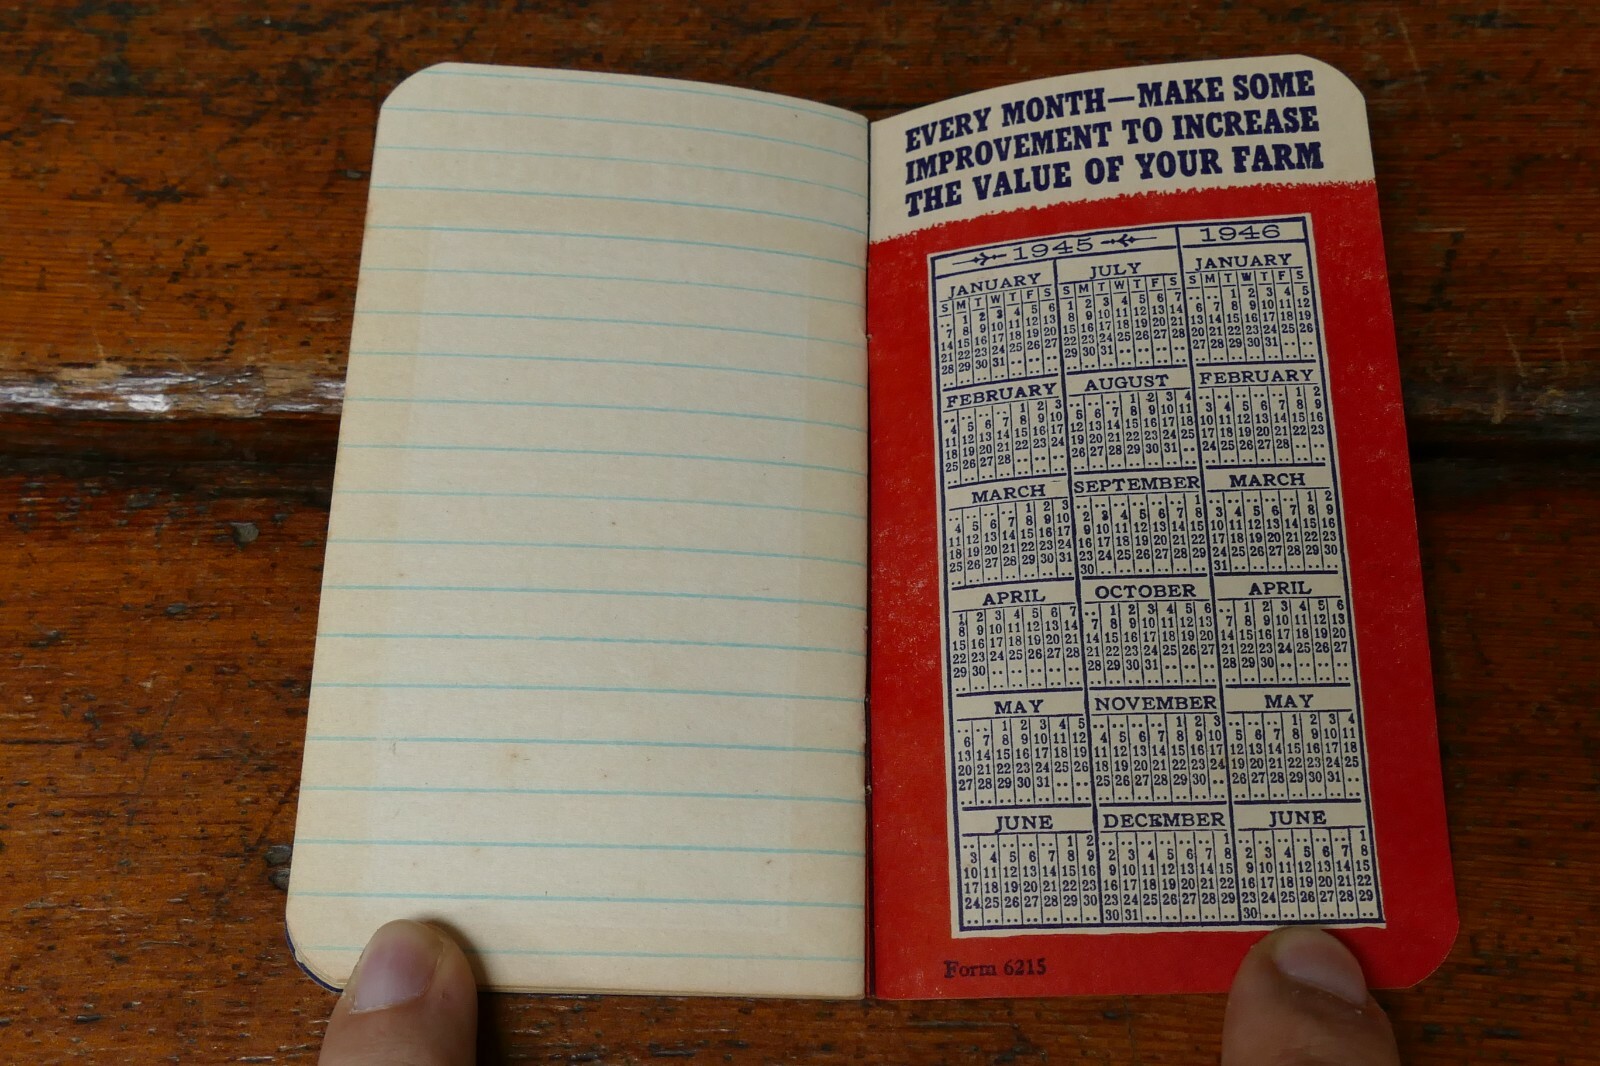 EVERY MONTH—MAKE SOME
IMPROVEMENT TO INCREASE
THE VALUE OF YOUR FARM
1945
JANUARY
S M T W T F S
1 2 3 4 5 6
7 8 9 10 11 12 13
14 15 16 17 18 19 20
21 22 23 24 25 26 27
28 29 30 31
FEBRUARY
1 2 3
4 5 6 7 8 9 10
11 12 13 14 15 16 17
18 19 20 21 22 23 24
25 26 27 28
MARCH
1 2 3
4 5 6 7 8 9 10
11 12 13 14 15 16 17
18 19 20 21 22 23 24
25 26 27 28 29 30 31
APRIL
1 2 3 4 5 6 7
8 9 10 11 12 13 14
15 16 17 18 19 20 21
22 23 24 25 26 27 28
29 30
MAY
1 2 3 4 5
6 7 8 9 10 11 12
13 14 15 16 17 18 19
20 21 22 23 24 25 26
27 28 29 30 31
JUNE
1 2
3 4 5 6 7 8 9
10 11 12 13 14 15 16
17 18 19 20 21 22 23
24 25 26 27 28 29 30
JULY
S M T W T F S
1 2 3 4 5 6 7
8 9 10 11 12 13 14
15 16 17 18 19 20 21
22 23 24 25 26 27 28
29 30 31
AUGUST
1 2 3 4
5 6 7 8 9 10 11
12 13 14 15 16 17 18
19 20 21 22 23 24 25
26 27 28 29 30 31
SEPTEMBER
1
2 3 4 5 6 7 8
9 10 11 12 13 14 15
16 17 18 19 20 21 22
23 24 25 26 27 28 29
30
OCTOBER
1 2 3 4 5 6
7 8 9 10 11 12 13
14 15 16 17 18 19 20
21 22 23 24 25 26 27
28 29 30 31
NOVEMBER
1 2 3
4 5 6 7 8 9 10
11 12 13 14 15 16 17
18 19 20 21 22 23 24
25 26 27 28 29 30
DECEMBER
1
2 3 4 5 6 7 8
9 10 11 12 13 14 15
16 17 18 19 20 21 22
23 24 25 26 27 28 29
30 31
1946
JANUARY
S M T W T F S
1 2 3 4 5
6 7 8 9 10 11 12
13 14 15 16 17 18 19
20 21 22 23 24 25 26
27 28 29 30 31
FEBRUARY
1 2
3 4 5 6 7 8 9
10 11 12 13 14 15 16
17 18 19 20 21 22 23
24 25 26 27 28
MARCH
1 2
3 4 5 6 7 8 9
10 11 12 13 14 15 16
17 18 19 20 21 22 23
24 25 26 27 28 29 30
31
APRIL
1 2 3 4 5 6
7 8 9 10 11 12 13
14 15 16 17 18 19 20
21 22 23 24 25 26 27
28 29 30
MAY
1 2 3 4
5 6 7 8 9 10 11
12 13 14 15 16 17 18
19 20 21 22 23 24 25
26 27 28 29 30 31
JUNE
1
2 3 4 5 6 7 8
9 10 11 12 13 14 15
16 17 18 19 20 21 22
23 24 25 26 27 28 29
30
Form 6215